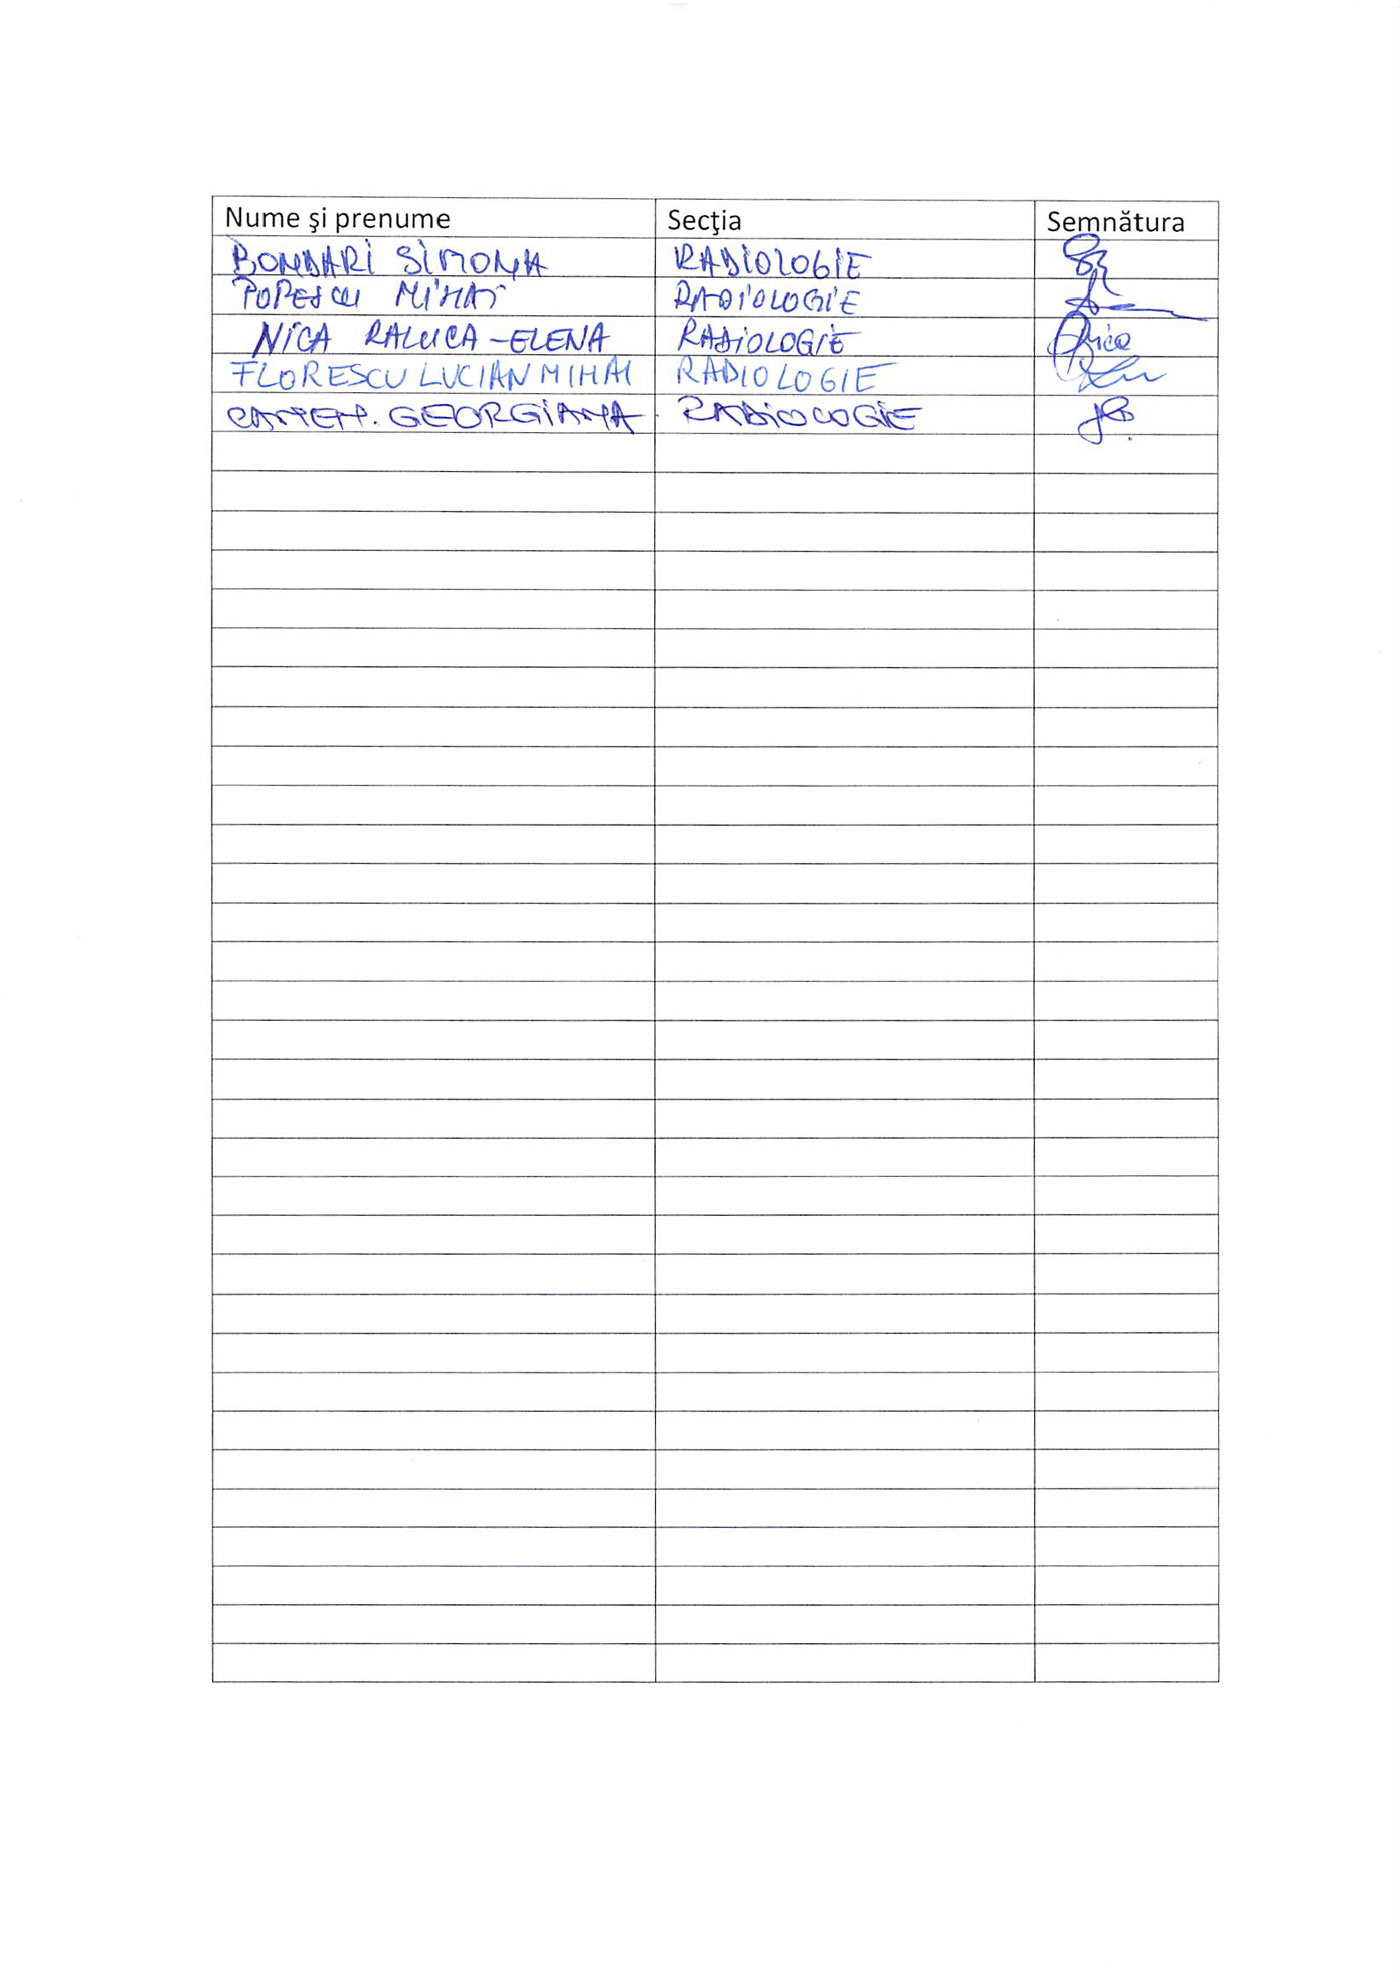 Nume şi prenume Secţia Semnătura
BONDARI SIMONA RADIOLOGIE
POPESCU MIHAI RADIOLOGIE
NICA RALUCA-ELENA RADIOLOGIE Nica
FLORESCU LUCIAN MIHAI RADIOLOGIE
GEORGIANA RADIOLOGIE